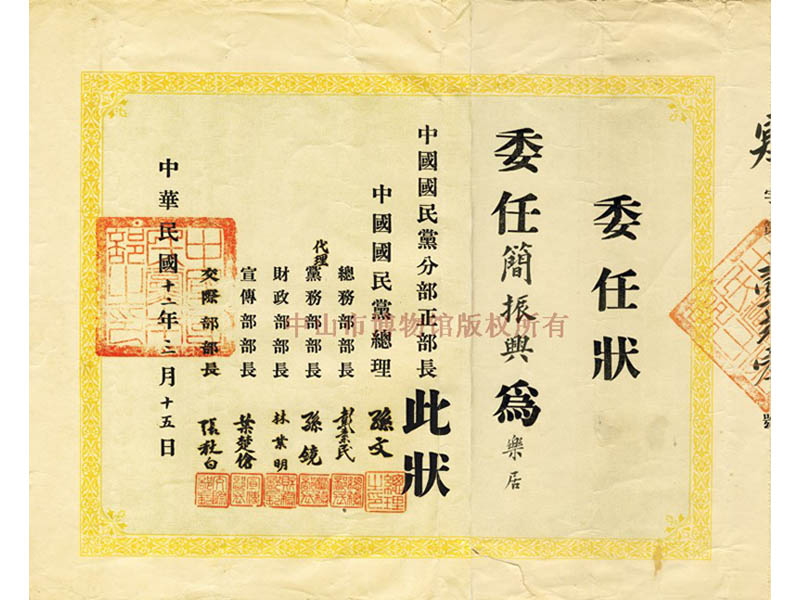 委任狀
委任簡振興為樂居
中國國民黨分部正部長此狀
中國國民黨總理孫文
總務部部長彭素民
代理黨務部部長孫鏡
財政部部長林業明
宣傳部部長葉楚傖
交際部部長張秋白
中華民國十二年三月十五日
中山市博物馆版权所有